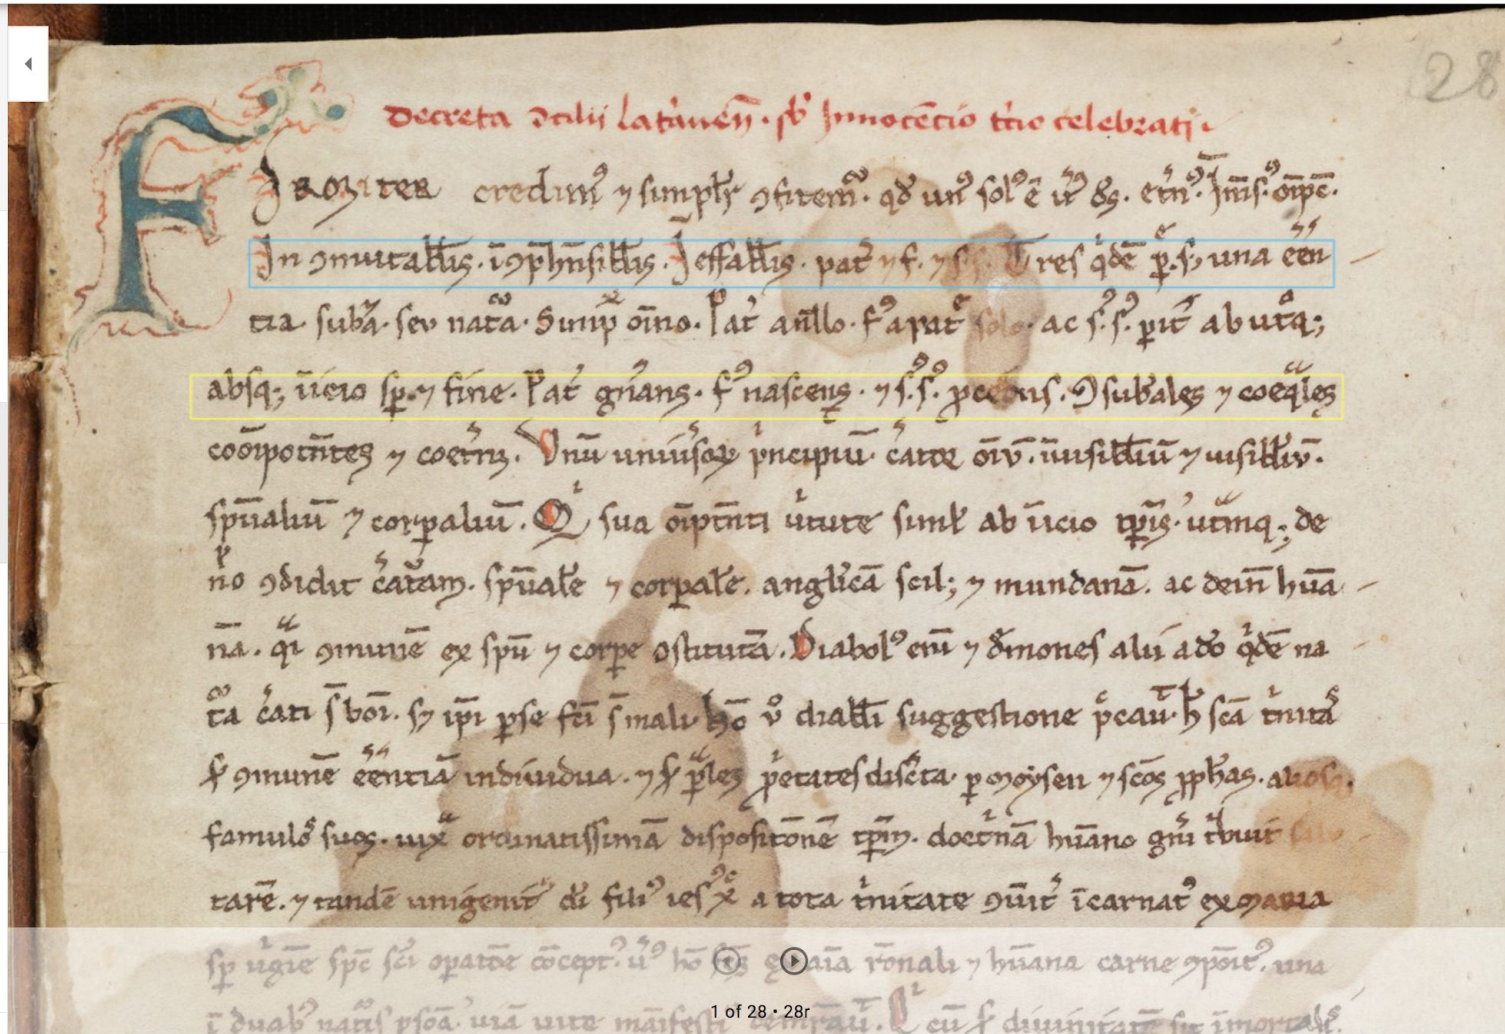 28
Decreta ↄcilii lat̓anen̄. sb̓ Innocēcio t̓cio celebrati.
FIRMITER credim᷒ ⁊ simpl̓r ꝯfitem᷒. qd̓ un᷒ sol᷒ ē u̓r ds̓. et̓n᷒. Īm̄s᷒. om̄pc̄.
In ꝯmutabl̄is. īꝯp̄hn̄sibl̄is. Ieffabl̄is. pat̓ ⁊ f. ⁊ s. s. Tres q̓dē ꝑ.s; una eēn
tia. sub̓a. seu nat̓a. Simp̄ om̄no. Pat̓ a nllo. f᷒ a pat̓ solo. ac s᷒.s᷒. ꝑit̓ ab utq̓;
absq; īicio sꝑ. ⁊ fine. Pat̓ gn̓ans. f᷒ nascens. ⁊ s᷒.s᷒. ꝓcedens. ↄsub̓ales ⁊ coeq̓les
coōīpotn̄tes ⁊ coet̓ni. Unū uniu̓soꝝ p̓ncipiū. c̓ator oīū. īuisibl̄iū ⁊ uisibl̄iū.
spūaliū ⁊ corꝑaliū. Qⁱ sua oīptn̄ti u̓tute siml̓ ab īicio tꝑis. ut̓mq; de
nⁱo ꝯdidit c̓at̓am. spūale̓ ⁊ corꝑale̓. anglicā scil; ⁊ mundanā. ac dein̄ hūa
nā. q̓i ꝯmunē ex spū ⁊ corpe ↄstitutā. Diabol᷒ eni̓ ⁊ d̓mones alii a dō q̓dē na
t̓a c̓ati s̄ boni. s; ip̄i ꝑ se fc̄i s̄ mali. hō u̓o diabl̄i suggestione p̓cauit. h̓ sc̄a t̓nitas
s̓ ꝯmunē eēntiā indiuidua. ⁊ s̓ ꝑ̓les ꝓp̓etates disc̓ta. ꝑ moysen ⁊ sc̄os ꝓph̓as. aliosq;
famulos suos. iux̓ ordinatissimā dispositōnē tꝑm̄. doct̓nā hūano gn̓i t̓buit salu
tarē. ⁊ tandē unigenit᷒ di̓ fili᷒ ies᷒ x᷒ a tota t̓nitate ꝯmūit̓ īcarnat᷒ ex maria
sꝑ u̓gīe spc̄ sc̄i coꝑatōe cōcept᷒. u̓᷒ hō fc̄s ex aīa rōnali ⁊ hūana carne ꝯpōit᷒. una
ī duab᷒ nat̓is psōa. uiā uite māifesti᷒ demr̄auit. Qⁱ cū s̓ diuinitatē sit īmortal̓.
1 of 28 • 28r